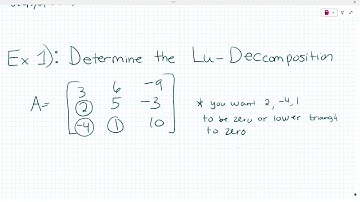 Ex 1): Determine the Lu-Deccomposition
A= [ 3 6 -9
2 5 -3
-4 1 10 ]
* you want 2, -4, 1
to be zero or lower triangl
to zero